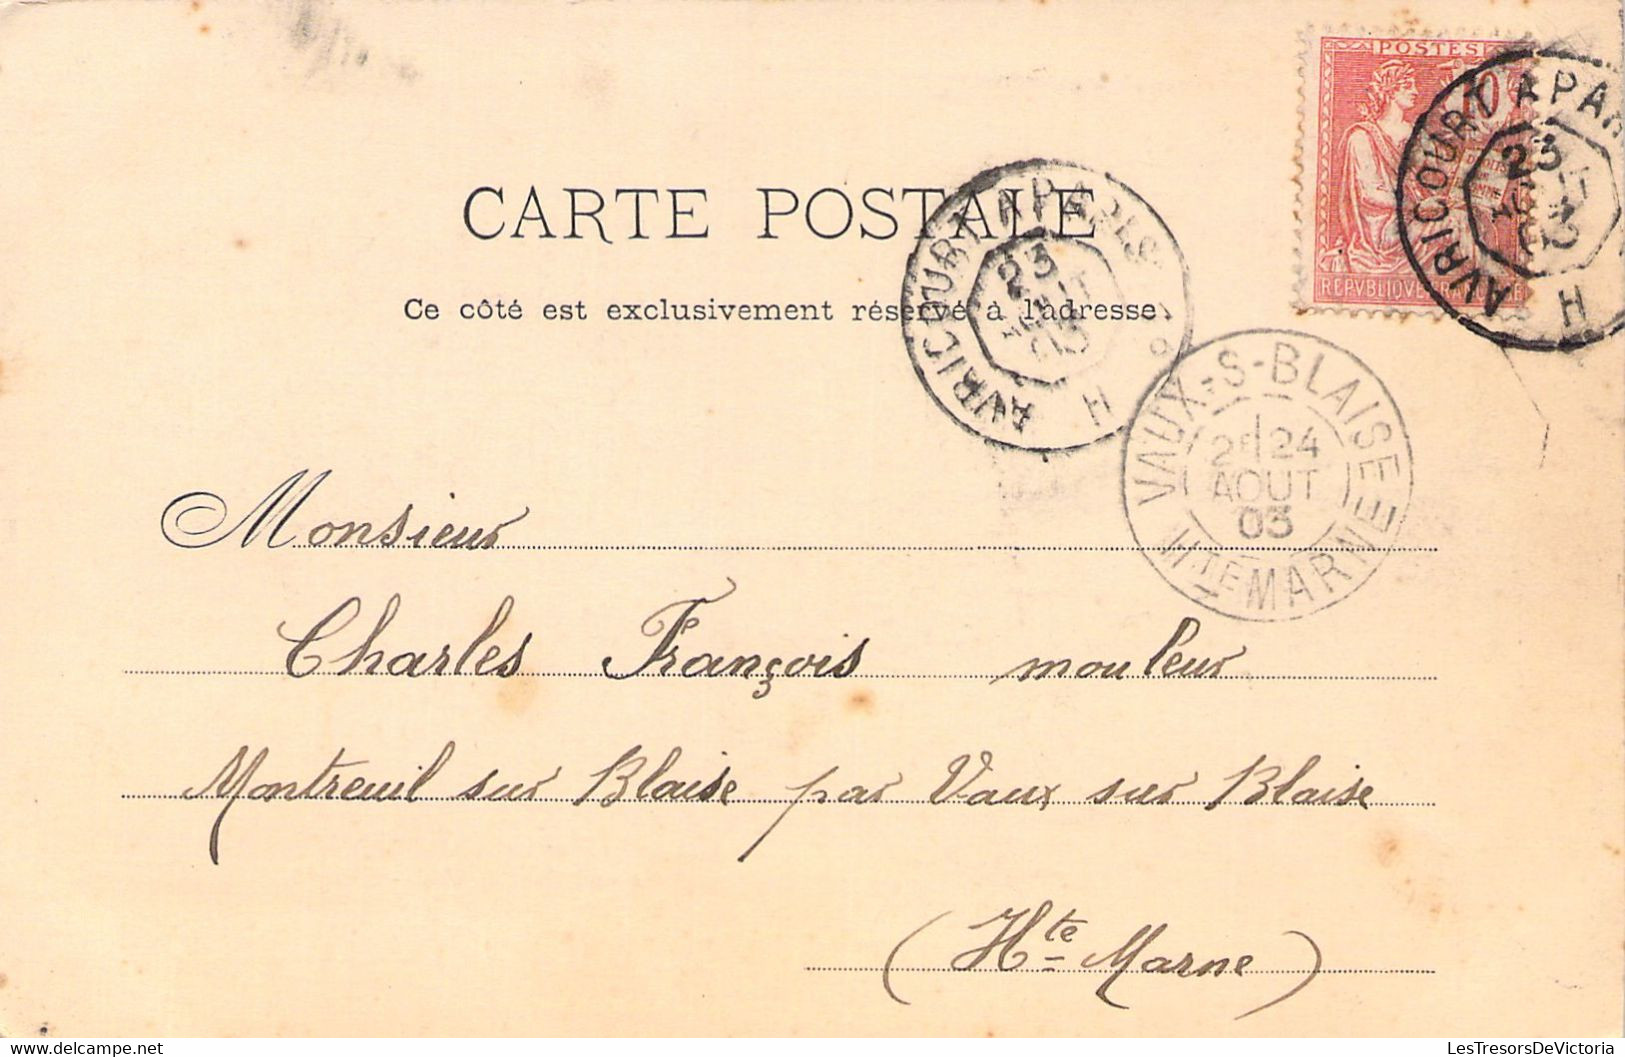 POSTES
10
REPVBLIQVE FRANÇAISE
AVRICOURT A PAR
23
03
H
CARTE POSTALE
Ce côté est exclusivement réservé à l'adresse.
AVRICOURT A PARIS
23
AOUT
03
H
VAUX-S-BLAISE
24
AOUT
03
HTE MARNE
Monsieur
Charles François mouleur
Montreuil sur Blaise par Vaux sur Blaise
(Hte Marne)
LesTresorsDeVictoria